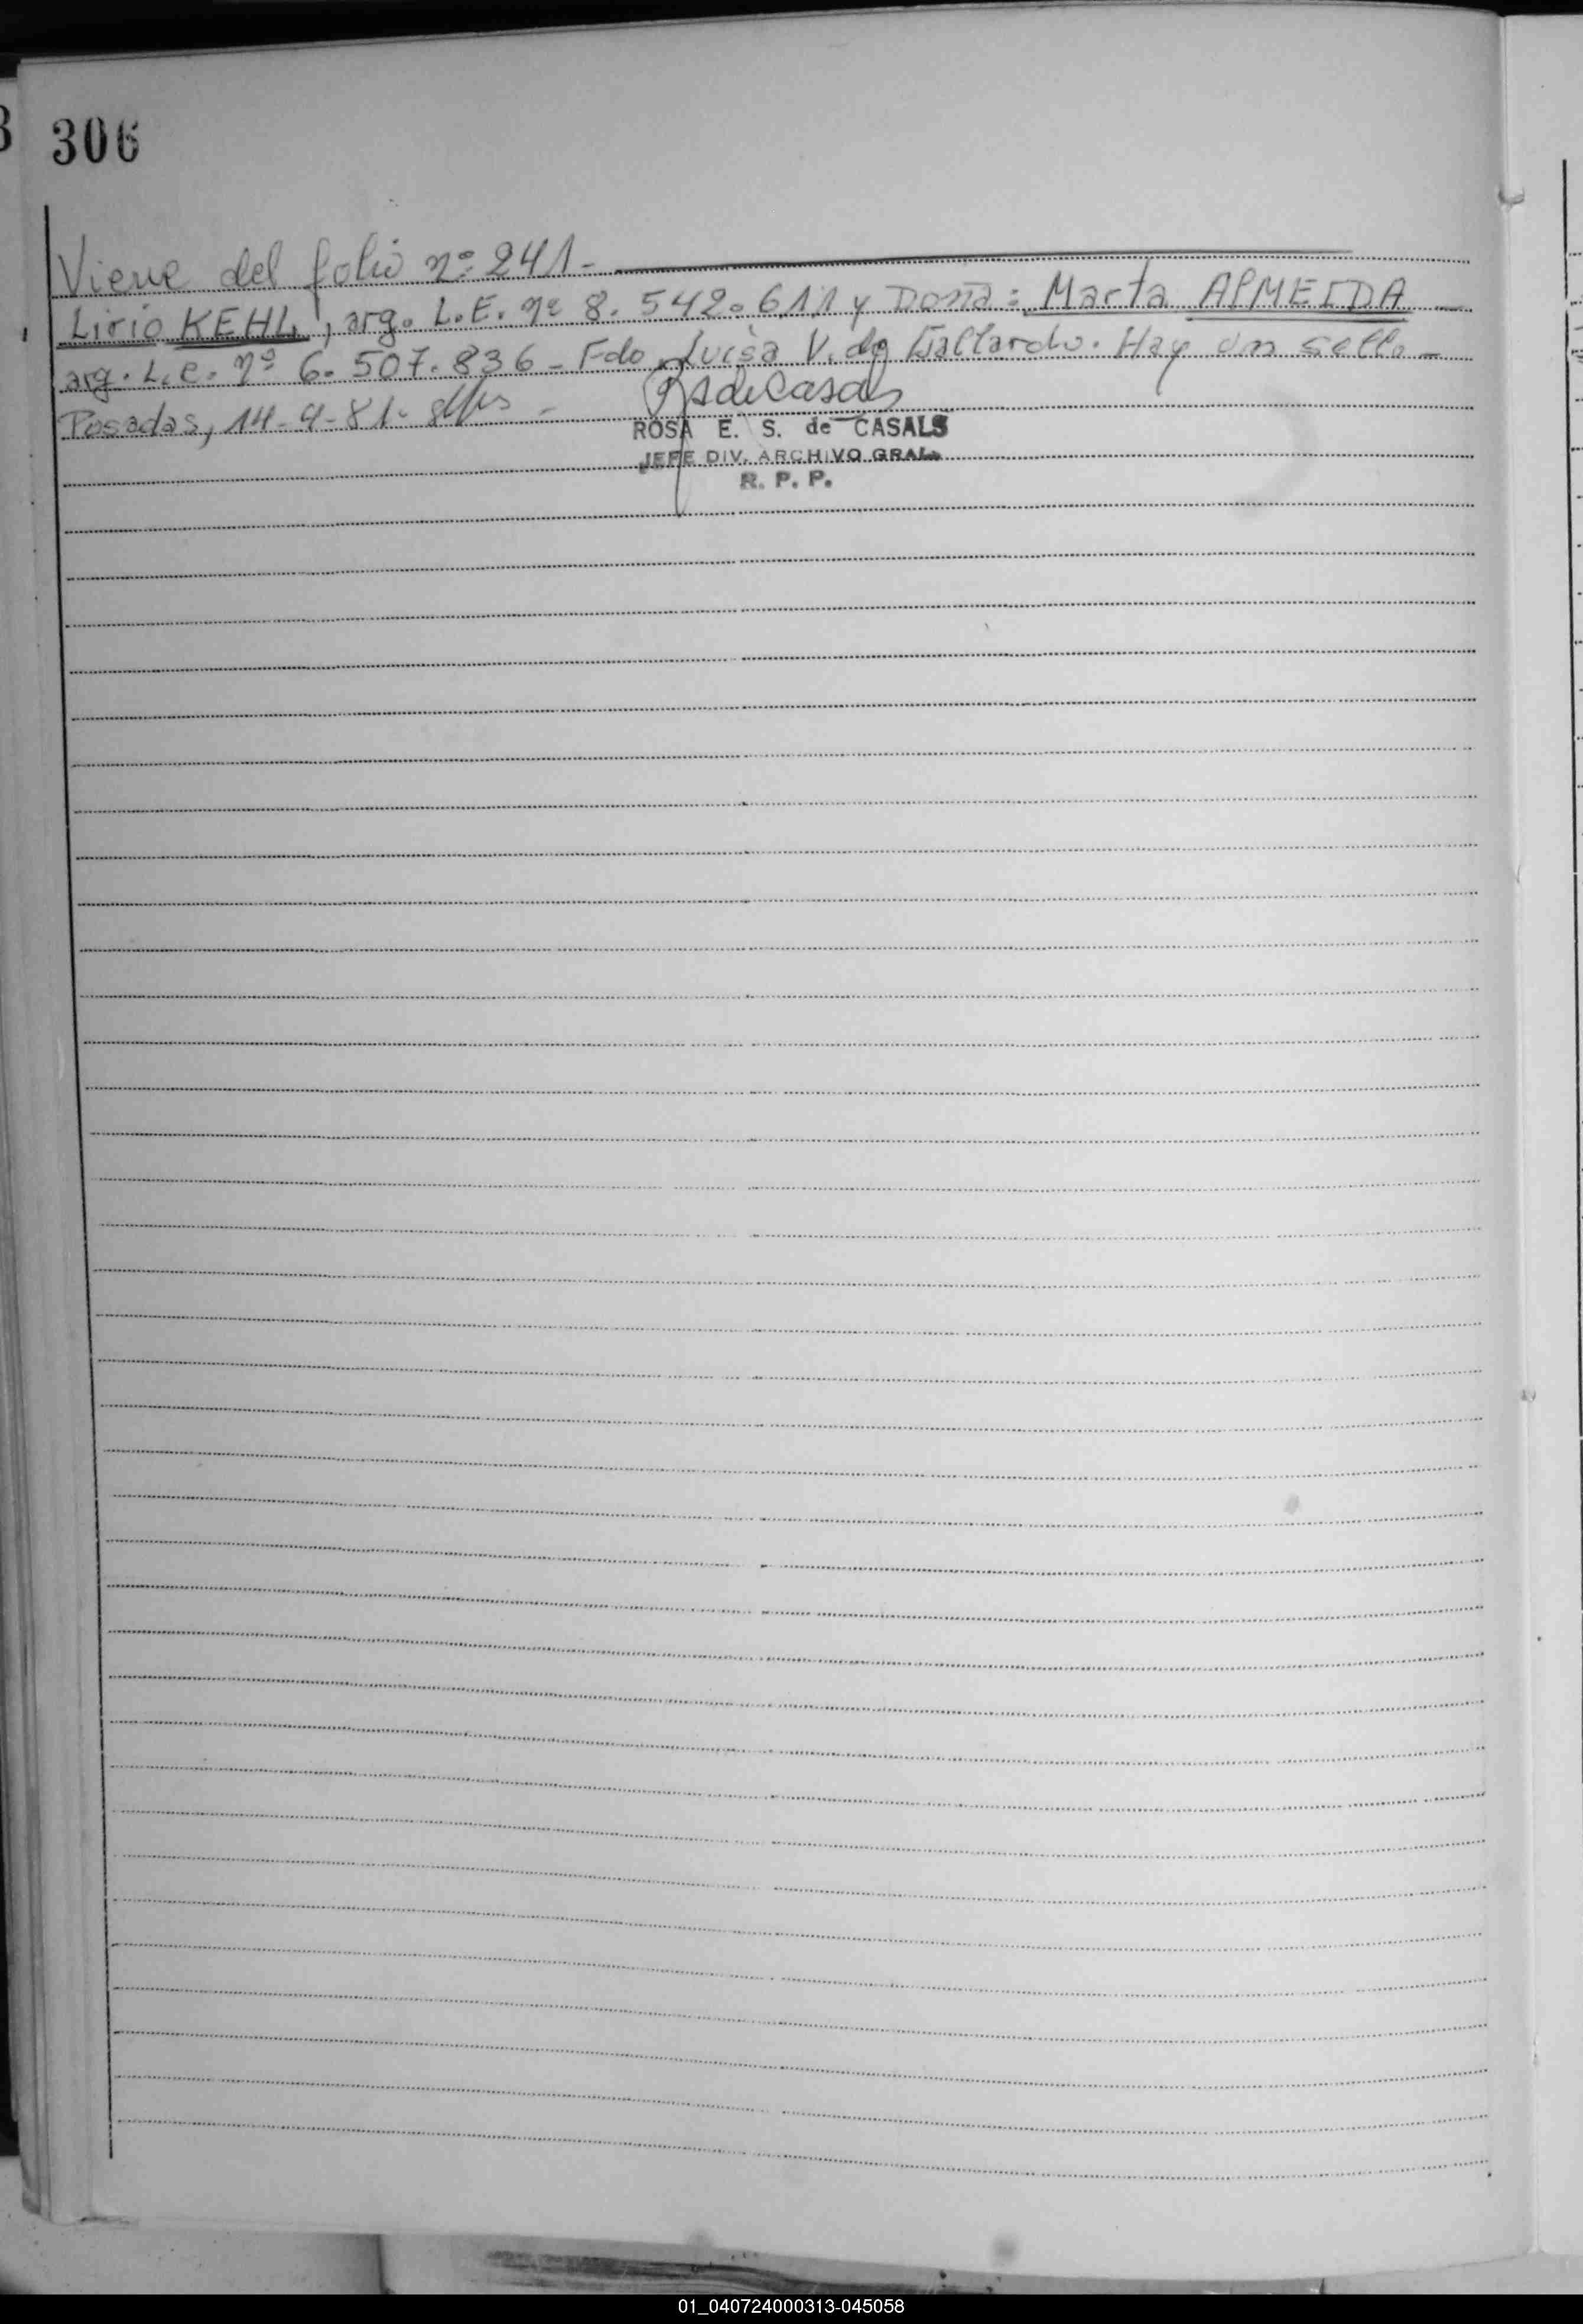 306
Viene del folio nº 241.-
Lirio KEHL, arg. L.E. nº 8.542.611 y Doña: Marta ALMEIDA -
arg. L.C. nº 6.507.836 - Fdo Luisa V. de Gallardo. Hay un sello -
Posadas, 14-9-81-
ROSA E. S. de CASALS
JEFE DIV. ARCHIVO GRAL.
R. P. P.
01_040724000313-045058